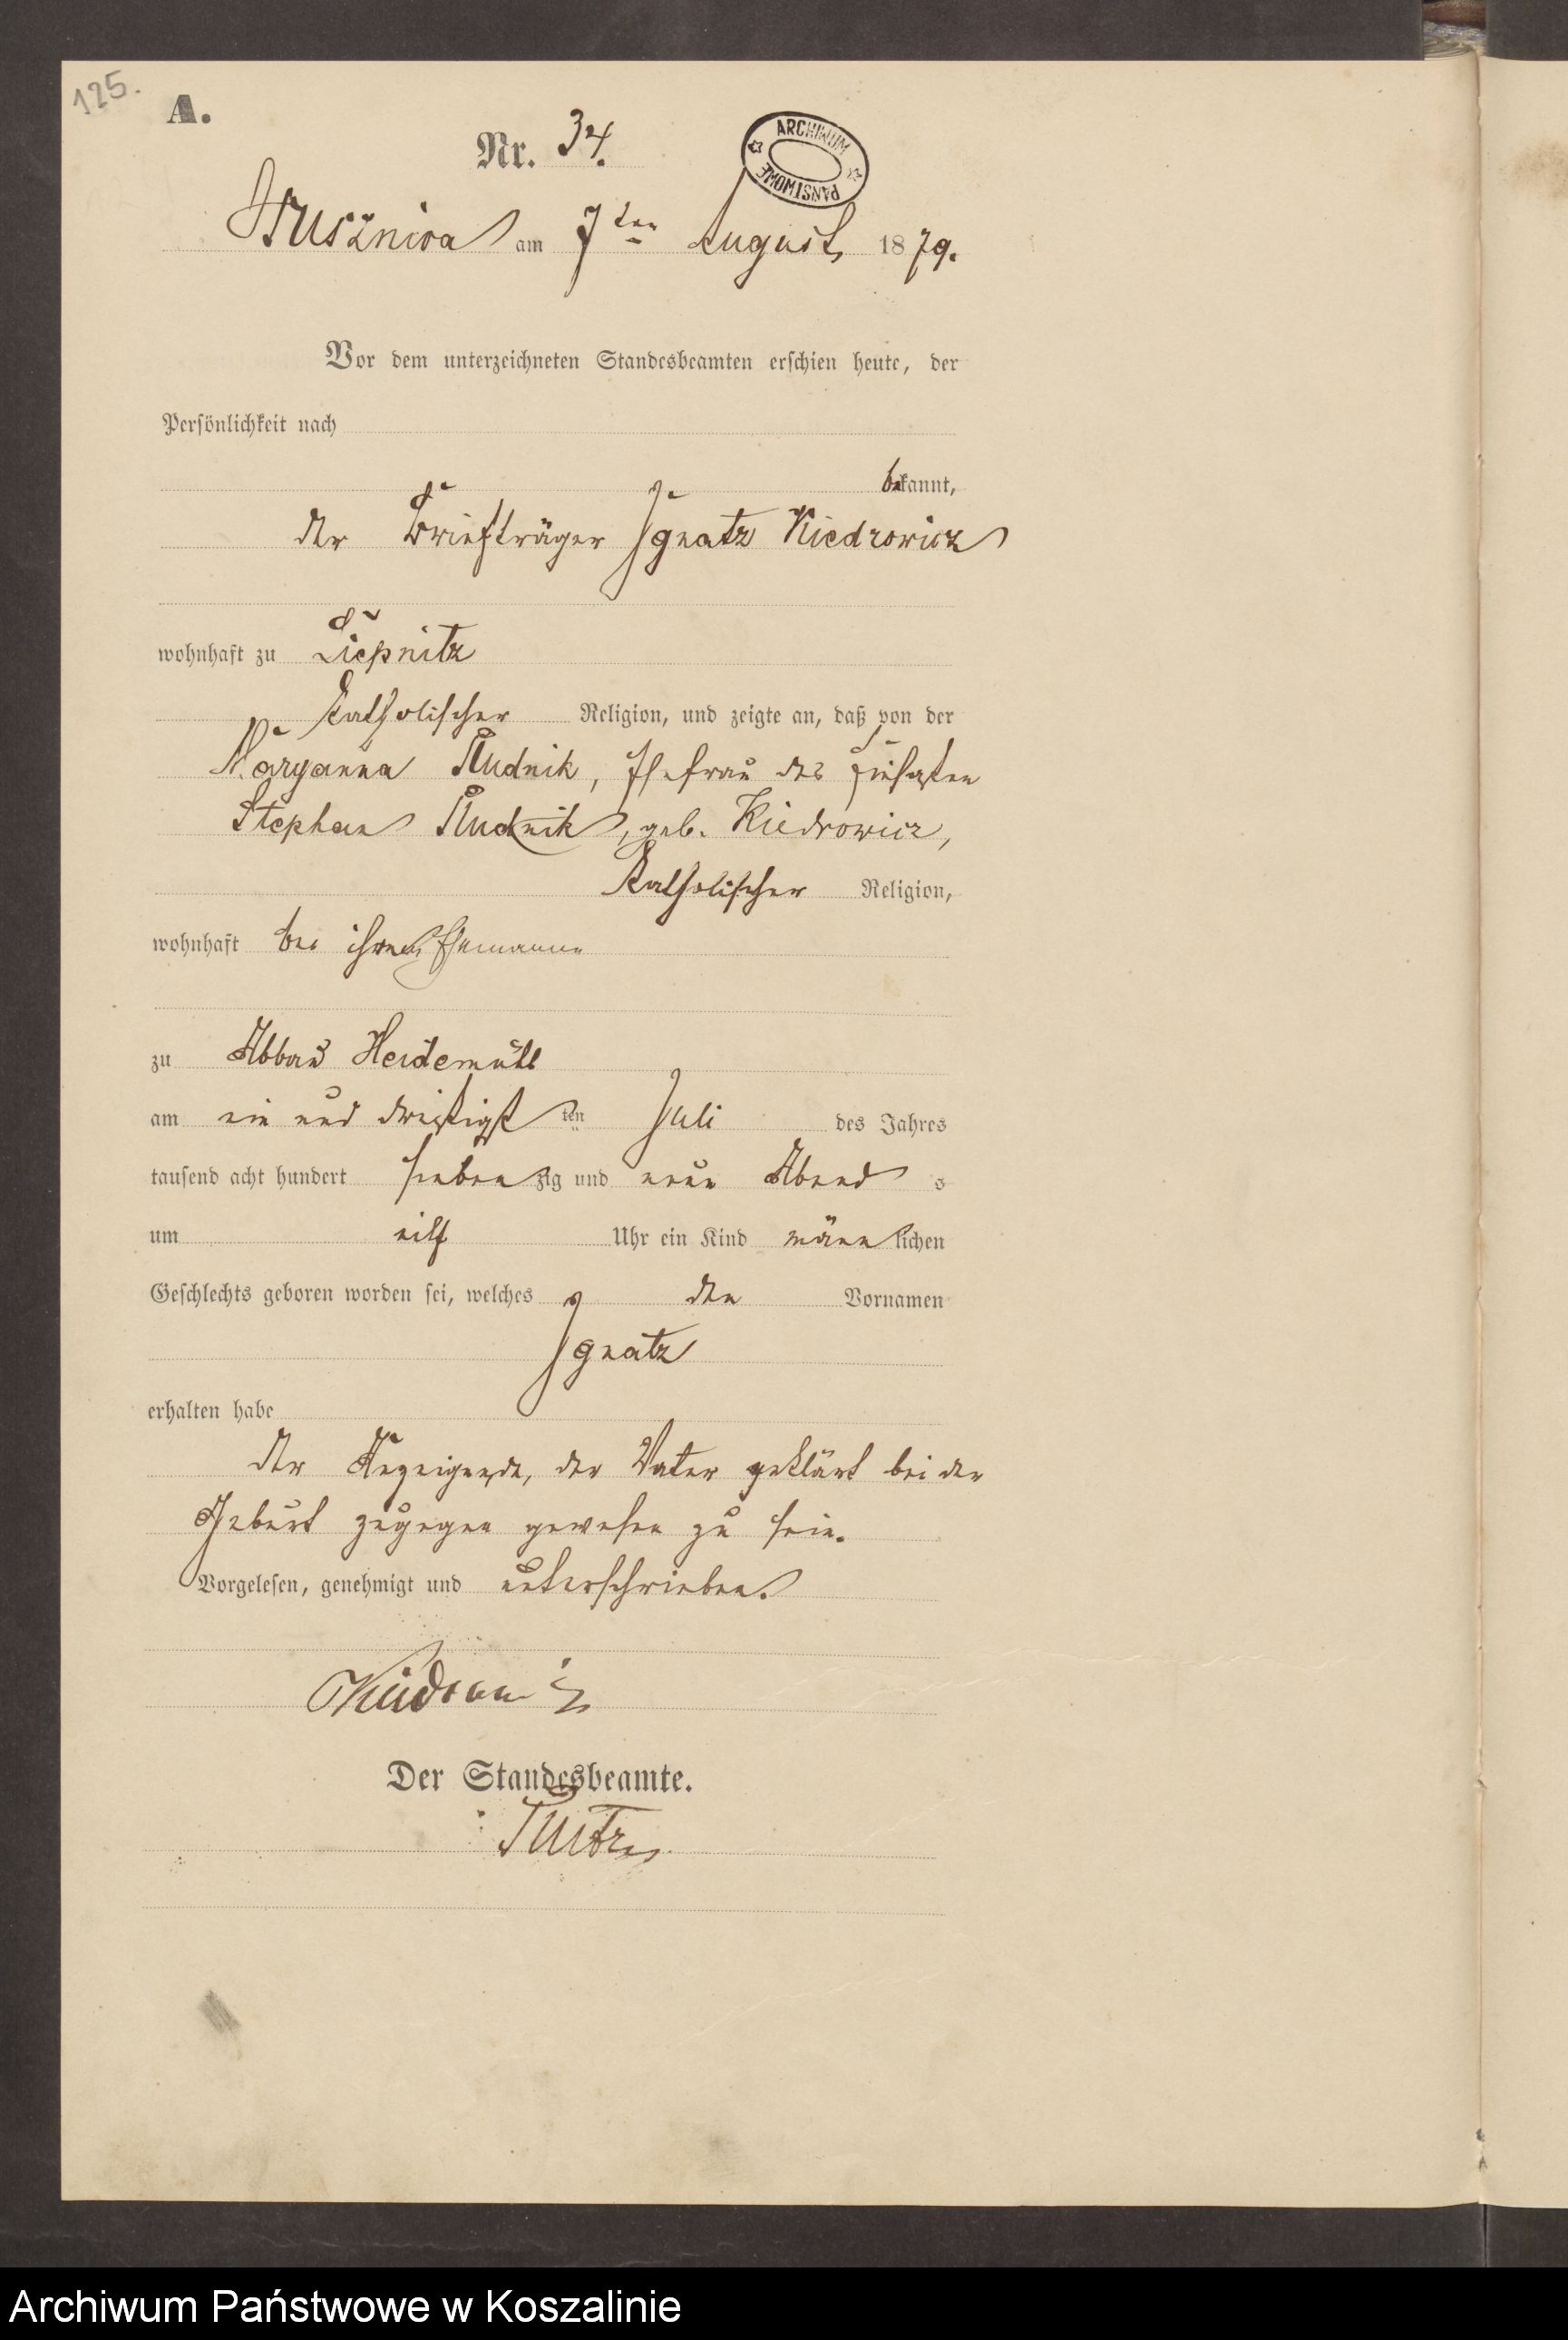 125.
A.
Nr. 34.
ARCHIWUM PAŃSTWOWE
am 7ten August 1879.
Vor dem unterzeichneten Standesbeamten erschien heute, der
Persönlichkeit nach
bekannt,
der Briefträger Ignatz Kiedrowicz
wohnhaft zu Liepnitz
katholischer Religion, und zeigte an, daß von der
Maryanna Rudnik, Ehefrau des
Stephan Rudnik, geb. Kiedrowicz,
katholischer Religion,
wohnhaft bei ihrem Ehemanne
zu Abbau Heidemühl
am ein und dreißigsten Juli des Jahres
tausend acht hundert siebenzig und neun Abends
um eilf Uhr ein Kind männlichen
Geschlechts geboren worden sei, welches den Vornamen
Ignatz
erhalten habe
Der Anzeigende, der Vater erklärt bei der
Geburt zugegen gewesen zu sein.
Vorgelesen, genehmigt und unterschrieben.
Der Standesbeamte.
Archiwum Państwowe w Koszalinie